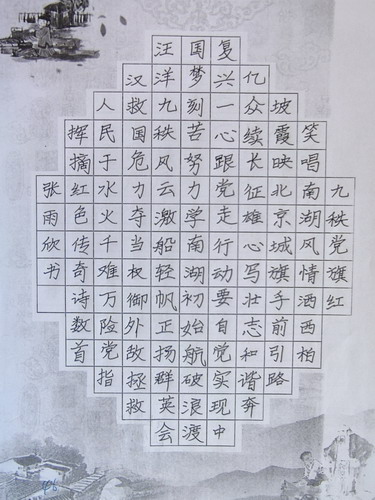 九秩党旗红
笑唱南湖风情洒西柏
坡霞映北京城旗手前引路
亿众续长征雄心写壮志和谐奔
复兴一心跟党走行动要自觉实现中
国梦刻苦努力学南湖初始航破浪渡
汪洋九秩风云激船轻帆正扬群英会
汉救国危力夺当权御外敌拯救
人民于水火千难万险党指
挥摘红色传奇诗数首
张雨欣书